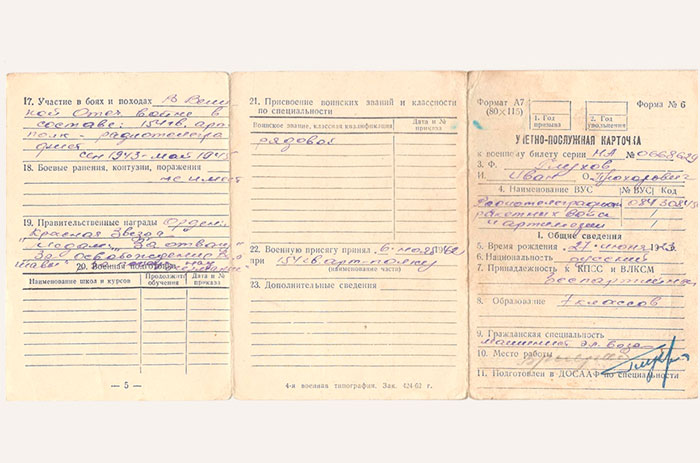 17. Участие в боях и походах В Вели
кой Отеч. войне в
составе: 154 гв. арт
полк - радиотелегра
фист
сен 1943 - май 1945
18. Боевые ранения, контузии, поражения
не имеет
19. Правительственные награды Орден:
"Красная Звезда"
медали: "За отвагу"
"За освобождение
20. Военная подготовка
Наименование школ и курсов Продолжит. обучения Дата и № приказа
— 5 —
21. Присвоение воинских званий и классности
по специальности
Воинское звание, классная квалификация Дата и № приказа
рядовой
22. Военную присягу принял 6 ноября 1942
при 154 гв арт-полку
(наименование части)
23. Дополнительные сведения
4-я военная типография. Зак. 424-62 г.
Формат А7
(80×115)
Форма № 6
1. Год призыва
2. Год увольнения
УЧЕТНО-ПОСЛУЖНАЯ КАРТОЧКА
к военному билету серии НА №
3. Ф. Глухов
И. Иван О. Прохорович
4. Наименование ВУС № ВУС Код
Радиотелеграфист
ракетных войск
и артиллерии
5. Время рождения 21 июня
6. Национальность русский
7. Принадлежность к КПСС и ВЛКСМ
беспартийный
8. Образование 7 классов
9. Гражданская специальность
машинист эл. воза
10. Место работы
11. Подготовлен в ДОСААФ по специальности